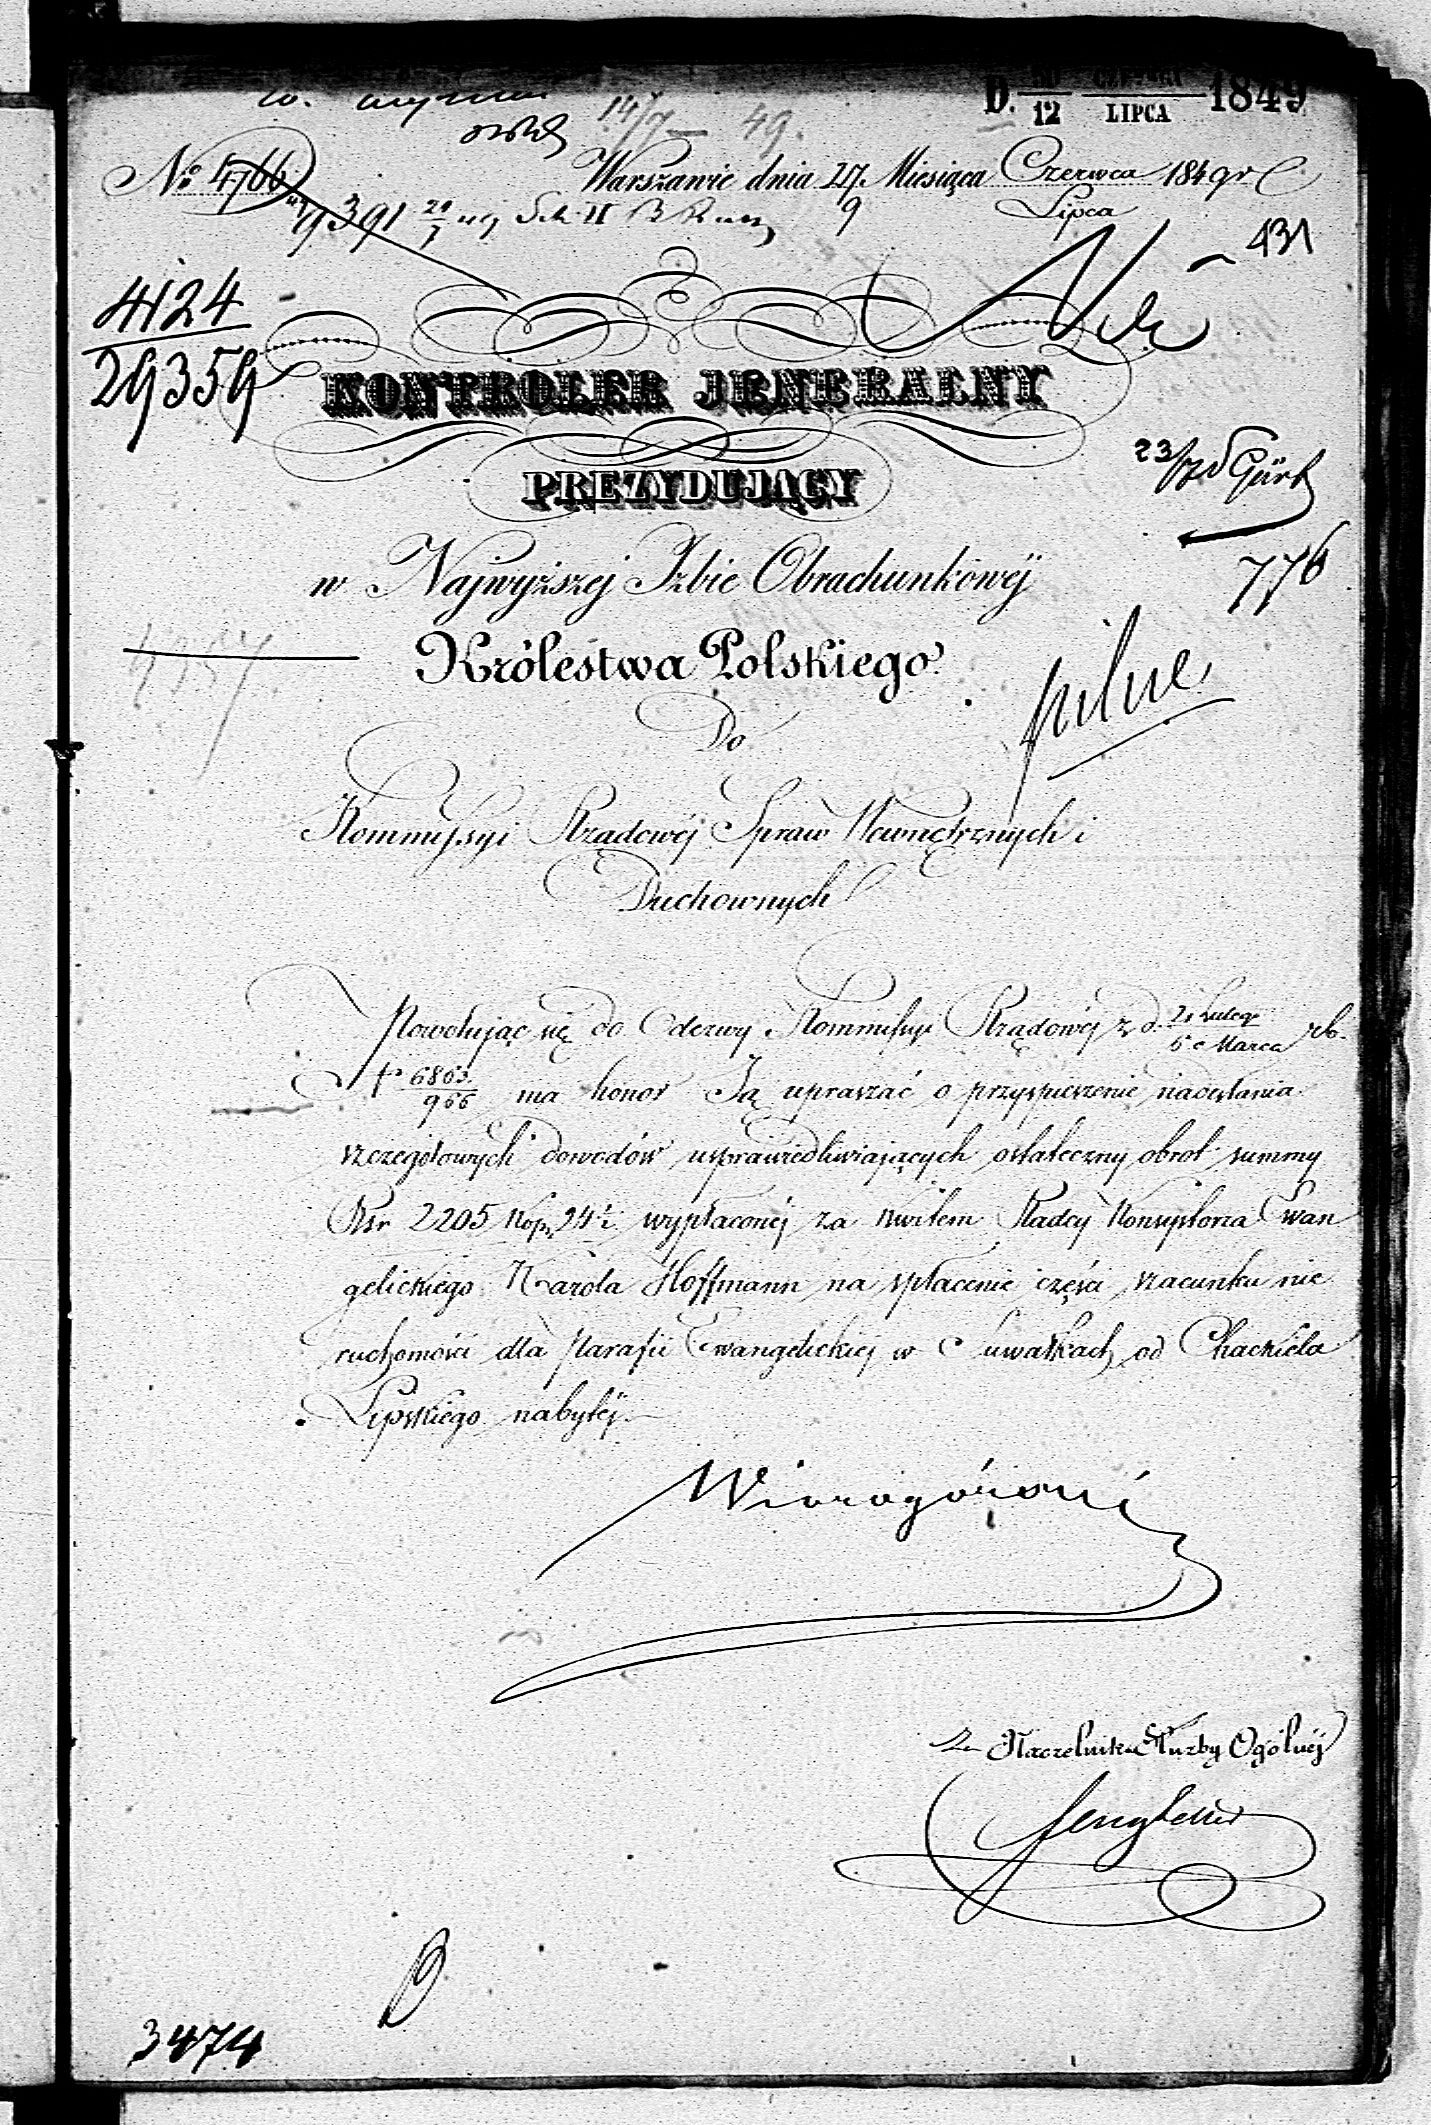 D. 12 CZERWCA LIPCA 1849
14/7 – 49.
No 4766 Warszawie dnia 27. Miesiąca Czerwca 1849 r
9 Lipca
431
4124
29359
KONTROLER JENERALNY
23/7
PREZYDUJĄCY
776
w Najwyższej Izbie Obrachunkowéj
Królestwa Polskiego.
pilne
Do
Kommissyi Rządowéj Spraw Wewnętrznych i
Duchownych
Powołując się do Odezwy Kommissyi Rządowéj z d. 21 Lutego / 5 Marca rb.
6863 / 966 ma honor Ją upraszać o przyspieszenie nadesłania
szczegółowych dowodów usprawiedliwiających ostateczny obrót summy
Rsr 2205 Kop. 24½ wypłaconéj za kwitem Radcy Konsystorza Ewan
gelickiego Karola Hoffmann na spłacenie części szacunku nie
ruchomości dla Parafii Ewangelickiej w Suwałkach od Chackiela
Lipskiego nabytéj.
Za Naczelnika Służby Ogólnéj
3474